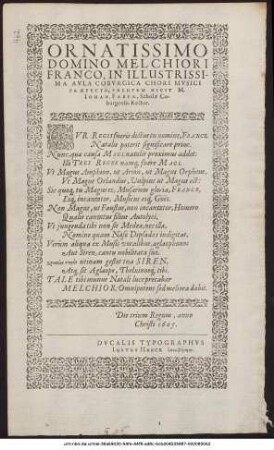 ORNATISSIMO
DOMINO MELCHIORI
FRANCO, IN ILLUSTRISSI-
MA AVLA COBVRGICA CHORI MVSICI
PRÆFECTO, M.
IOHAN. FABER, Scholæ Co-
burgensis Rector.
CVR REGIS fueris dictus in nomine, FRANCE
Natalis poterit significare prior.
Nunc quæ causa MAGI natalis proximus addet:
Hi TRES REGES namq; fuere MAGI.
Vt Magus Amphion, ut Arion, ut Magus Orpheus,
Vt Magus Orlandus, Vulpius ut Magus est:
Sic quoq; tu Magus es, Musarum gloria, FRANCE,
Estq; incantator, Musicus estq; Goës.
Non Magus, ut Faustus, non incantator, Homero
Qualis cantatus filius Autolyci,
Vt jungenda tibi non sit Medea, necilla,
Nomine quam Naso Dipsadis indigitat,
Verùm aliqua ex Musis vocalibus, aglaophemos
Aut Siren, cantu nobilitata suo.
utinam gestet tua SIREN,
Atq; sit Aglaope, Thelxinoeq; tibi.
TALE tibi munus Natali luce precabar
MELCHIOR, Omnipotens sed meliora dabit.
Die trium Regum, anno
Christi 1605.
DVCALIS TYPOGRAPHVS
IVSTVS HAVCK